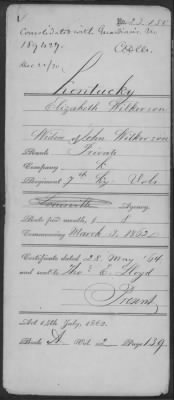 Consolidated with Guardians No
189429.
Dec 22/70
Kentucky
Elizabeth Wilkerson
Widow of John Wilkerson
Rank Private
Company K
Regiment 7th Ky. Vols
Louisville Agency.
Rate per month, $ 8
Commencing March 3, 1862
Certificate dated 28 May '64
and sent to Tho. E. Lloyd
Present
Act 14th July, 1862.
Book A Vol. 2 Page 139